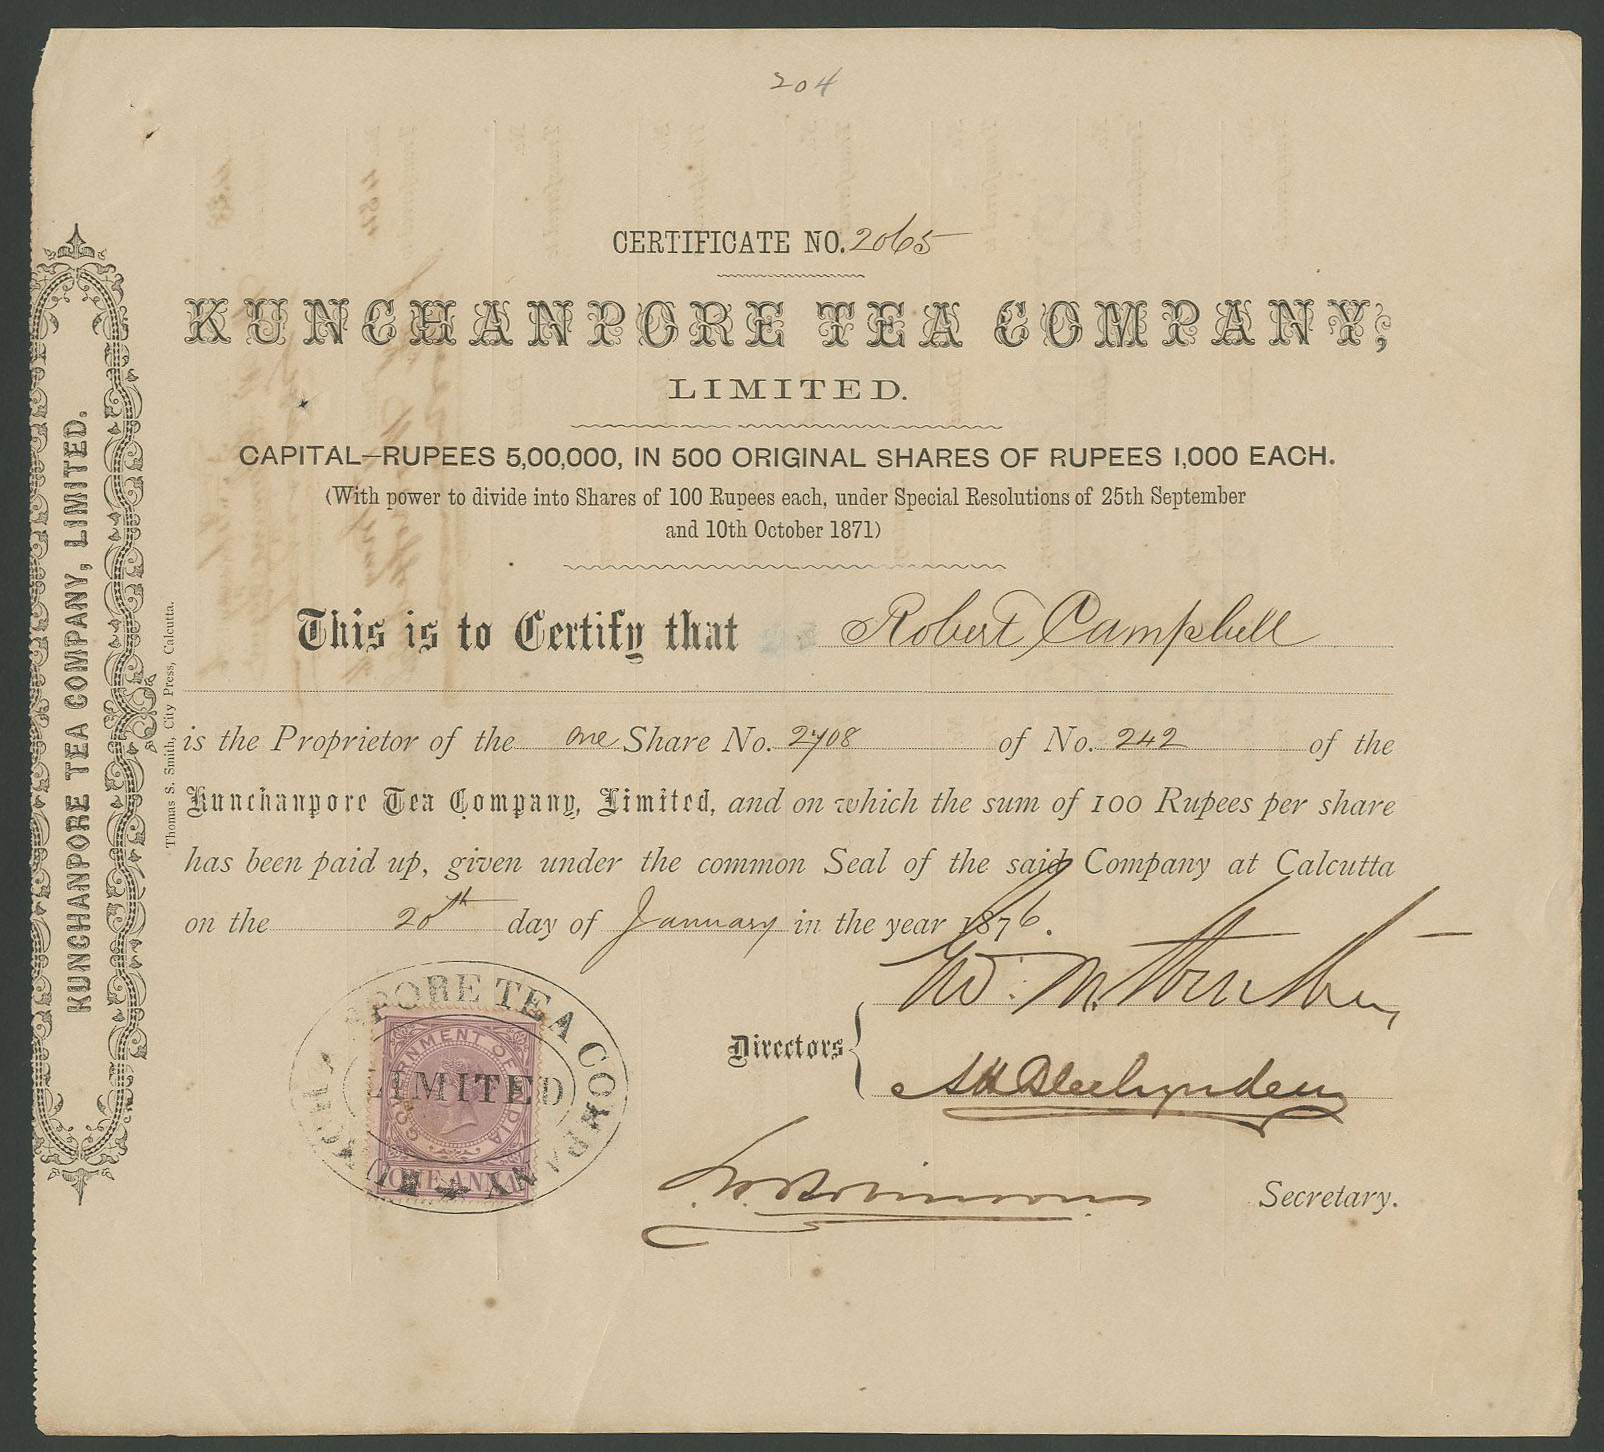 204
CERTIFICATE NO. 2065
KUNCHANPORE TEA COMPANY,
LIMITED.
CAPITAL—RUPEES 5,00,000, IN 500 ORIGINAL SHARES OF RUPEES 1,000 EACH.
(With power to divide into Shares of 100 Rupees each, under Special Resolutions of 25th September
and 10th October 1871)
This is to Certify that Robert Campbell
is the Proprietor of the one Share No. 2408 of No. 242 of the
Kunchanpore Tea Company, Limited, and on which the sum of 100 Rupees per share
has been paid up, given under the common Seal of the said Company at Calcutta
on the 20th day of January in the year 1876.
Directors
Secretary.
KUNCHANPORE TEA COMPANY, LIMITED.
Thomas S. Smith, City Press, Calcutta.
PORE TEA COMPANY
LIMITED
GOVERNMENT OF INDIA
ONE ANNA